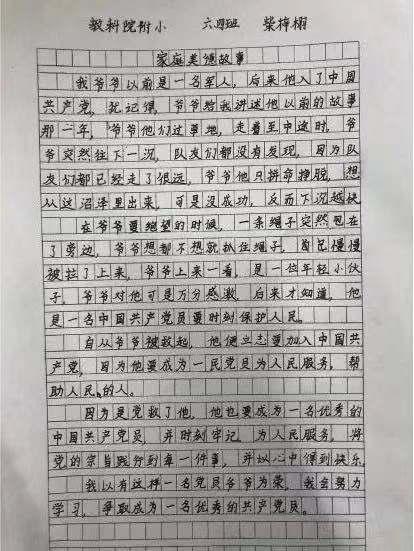 教科院附小 六四班 柴梓栩
家庭美德故事
我爷爷以前是一名军人，后来他入了中国
共产党，犹记得，爷爷给我讲述他以前的故事
那一年，爷爷他们过草地，走着至中途时，爷
爷突然往下一沉，队友们都没有发现，因为队
友们都已经走了很远，爷爷他只拼命挣脱，想
从这沼泽里出来，可是没成功，反而下沉越快
在爷爷要绝望的时候，一条绳子突然甩在
了旁边，爷爷想都不想就抓住绳子，自己慢慢
被拉了上来，爷爷上来一看，是一位年轻小伙
子，爷爷对他可是万分感激，后来才知道，他
是一名中国共产党员要时刻保护人民。
自从爷爷被救起，他便立志要加入中国共
产党，因为他要成为一民党员为人民服务，帮
助人民的人。
因为是党救了他，他也要成为一名优秀的
中国共产党员，并时刻牢记，为人民服务，将
党的宗旨践行到每一件事，并从心中得到快乐
我以有这样一名党员爷爷为荣，我会努力
学习，争取成为一名优秀的共产党员。